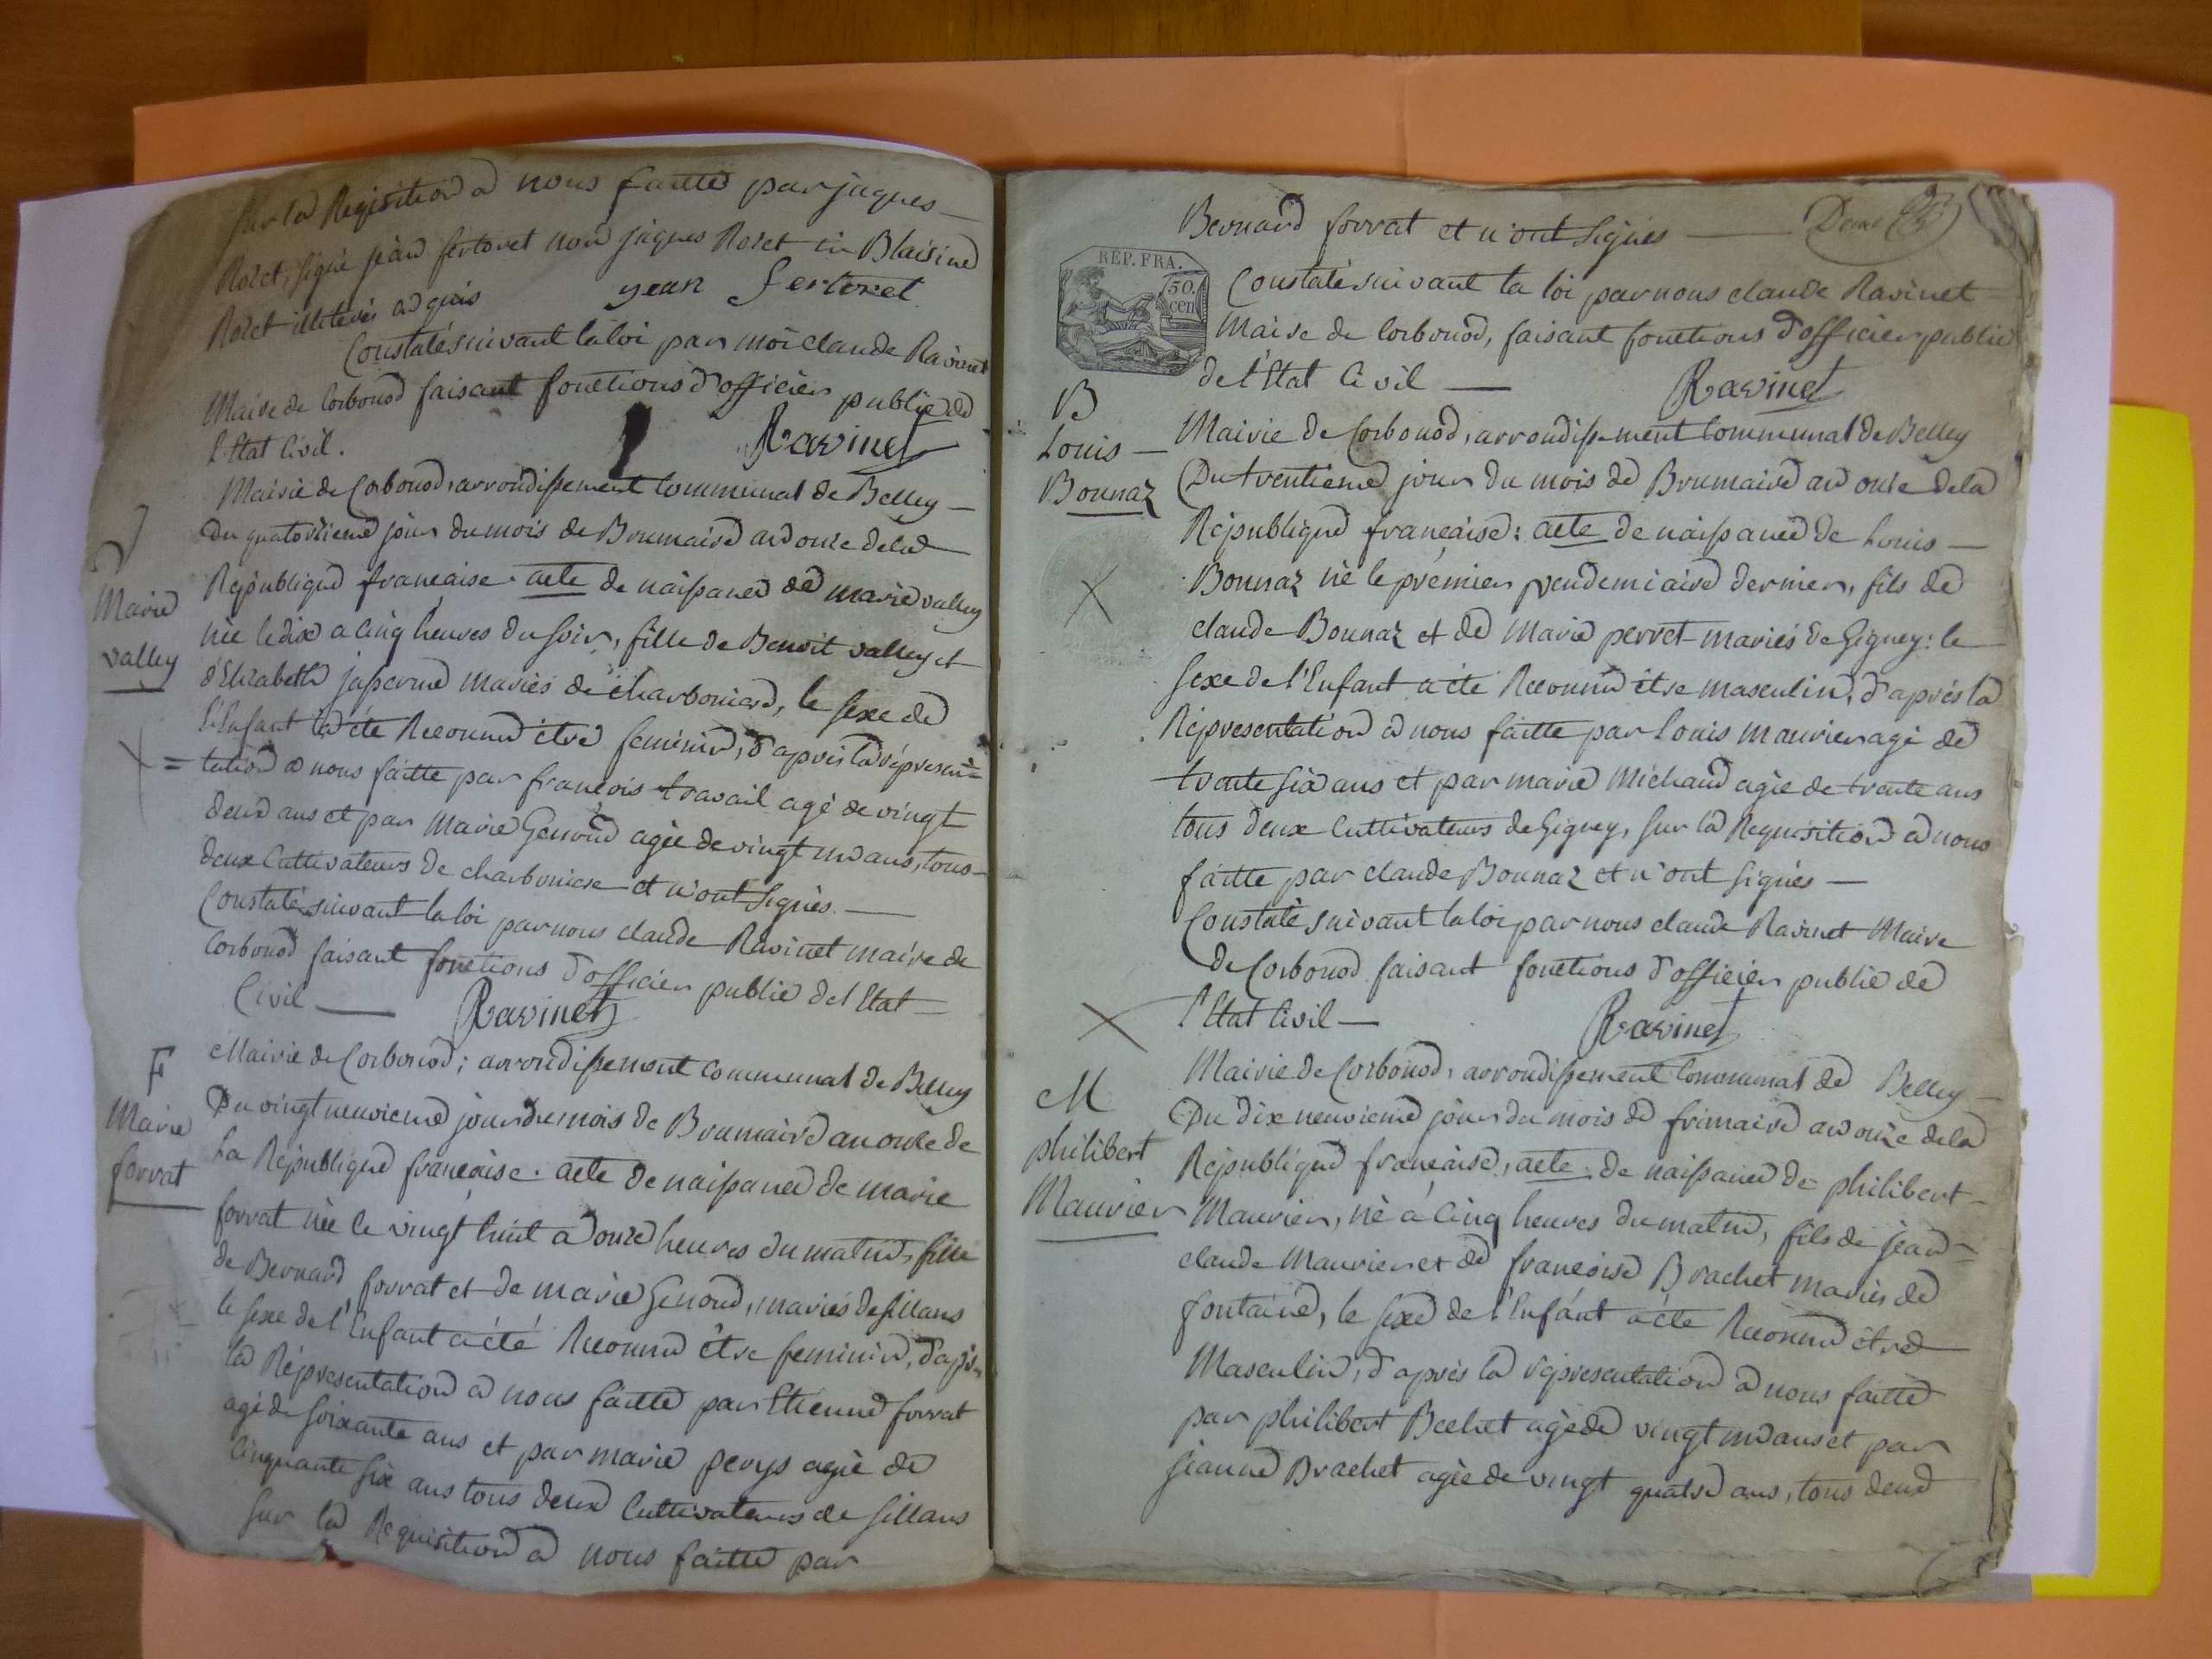 Sur la Requisition a nous faitte par jaques —
Rozet, signé jean fertoret non jaques Rozet ni Blaisine
Rozet illiterés a quis
jean fertoret
Constaté suivant la loi par moi claude Ravinet
Maire de Corbonod faisant fonctions d'officier public de
l'Etat Civil.
Ravinet
Mairie de Corbonod, arrondissement Communal de Belley —
Du quatorzieme jour du mois de Brumaire an onze de la
Republique francaise. acte de naissance de marie valley
née le dix a Cinq heures du soir, fille de Benoit valley et
d'Elizabeth jaserme mariés de charboniere, le sexe de
l'Enfant a été Reconnu être feminin, d'après la répresen=
= tation a nous faitte par francois travail agé de vingt
deux ans et par Marie Genoud agée de vingt un ans, tous
deux Cultivateurs de charboniere et n'ont signés —
Constaté suivant la loi par nous claude Ravinet maire de
Corbonod faisant fonctions d'officier public de l'Etat —
Civil — Ravinet
Marie
valley
Mairie de Corbonod; arrondissement Communal de Belley
Du vingt neuvieme jour du mois de Brumaire an onze de
La Republique francaise. acte de naissance de marie
forrat née le vingt huit a onze heures du matin, fille
de Bernard forrat et de marie Genoud, mariés de sillans
le sexe de l'Enfant a été Reconnu être feminin, d'après
la Répresentation a nous faitte par Etienne forrat
agé de soixante ans et par marie perys agée de
Cinquante six ans tous deux Cultivateurs de sillans
sur la Requisition a nous faitte par
F
Marie
forrat
Bernard forrat et n'ont signés —
REP. FRA.
50.
cen
Constaté suivant la loi par nous claude Ravinet
Maire de Corbonod, faisant fonctions d'officier public
de l'Etat Civil — Ravinet
B
Louis —
Bonnaz
Mairie de Corbonod, arrondissement Communal de Belley
Du trentieme jour du mois de Brumaire an onze de la
Republique francaise: acte de naissance de Louis —
Bonnaz né le prémier vendemiaire dernier, fils de
claude Bonnaz et de Marie perret mariés de Gigney: le
sexe de l'Enfant a été Reconnu être masculin, d'après la
Répresentation a nous faitte par Louis maurier agé de
trente six ans et par marie Michaud agée de trente ans
tous deux Cultivateurs de Gigney, sur la Requisition a nous
faitte par claude Bonnaz et n'ont signés —
Constaté suivant la loi par nous claude Ravinet Maire
de Corbonod faisant fonctions d'officier public de
l'Etat Civil — Ravinet
M
philibert
Maurier
Mairie de Corbonod, arrondissement Communal de Belley —
Du dix neuvieme jour du mois de frimaire an onze de la
Republique francaise, acte de naissance de philibert —
Maurier, né à Cinq heures du matin, fils de jean =
claude Maurier et de francoise Brachet mariés de
fontaine, le sexe de l'Enfant a été Reconnu être
Masculin, d'après la répresentation a nous faitte
par philibert Bechet agé de vingt un ans et par
jeanne Brachet agée de vingt quatre ans, tous deux